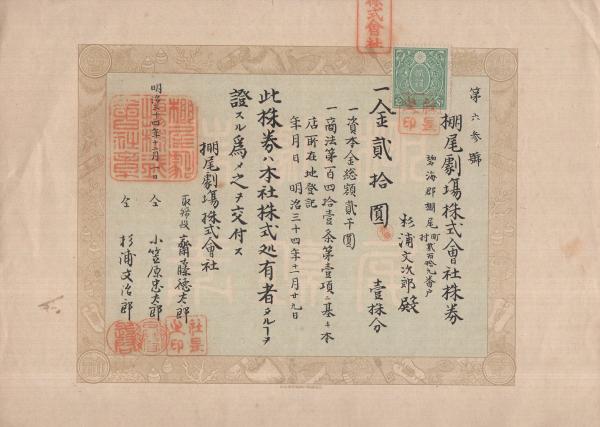 株式會社
第六参號
棚尾劇場株式會社株券
碧海郡棚尾町村貳百拾九番戸
杉浦文次郎殿
一金貳拾圓 壹株分
一資本金総額貳千圓
一商法第百四拾壹条第壹項ニ基キ本
店所在地登記
年月日 明治三十四年十一月廿九日
此株券ハ本社株式処有者タルーヲ
證スル為メ之ヲ交付ス
棚尾劇場株式會社
取締役 齋藤徳太郎
仝 小笠原忠太郎
仝 杉浦文治郎
明治三十四年十二月一日
社景之印